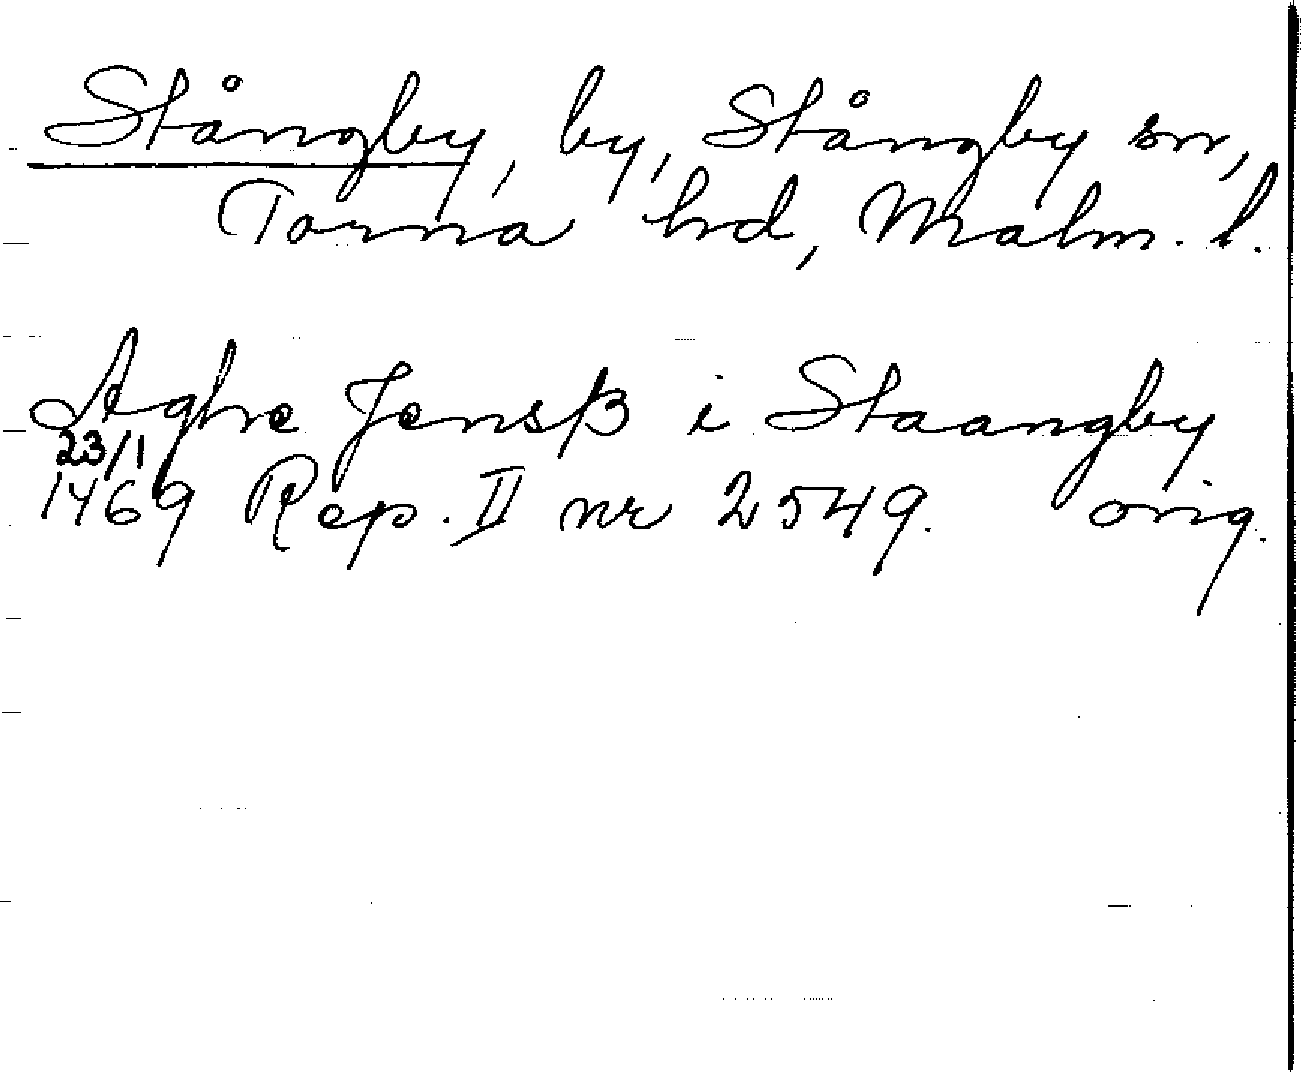 Stångby, by, Stångby sn,
Torna hd, Malm. l.
Aghe Jensß i Staangby
23/1
1469 Rep. II nr 2549. orig.